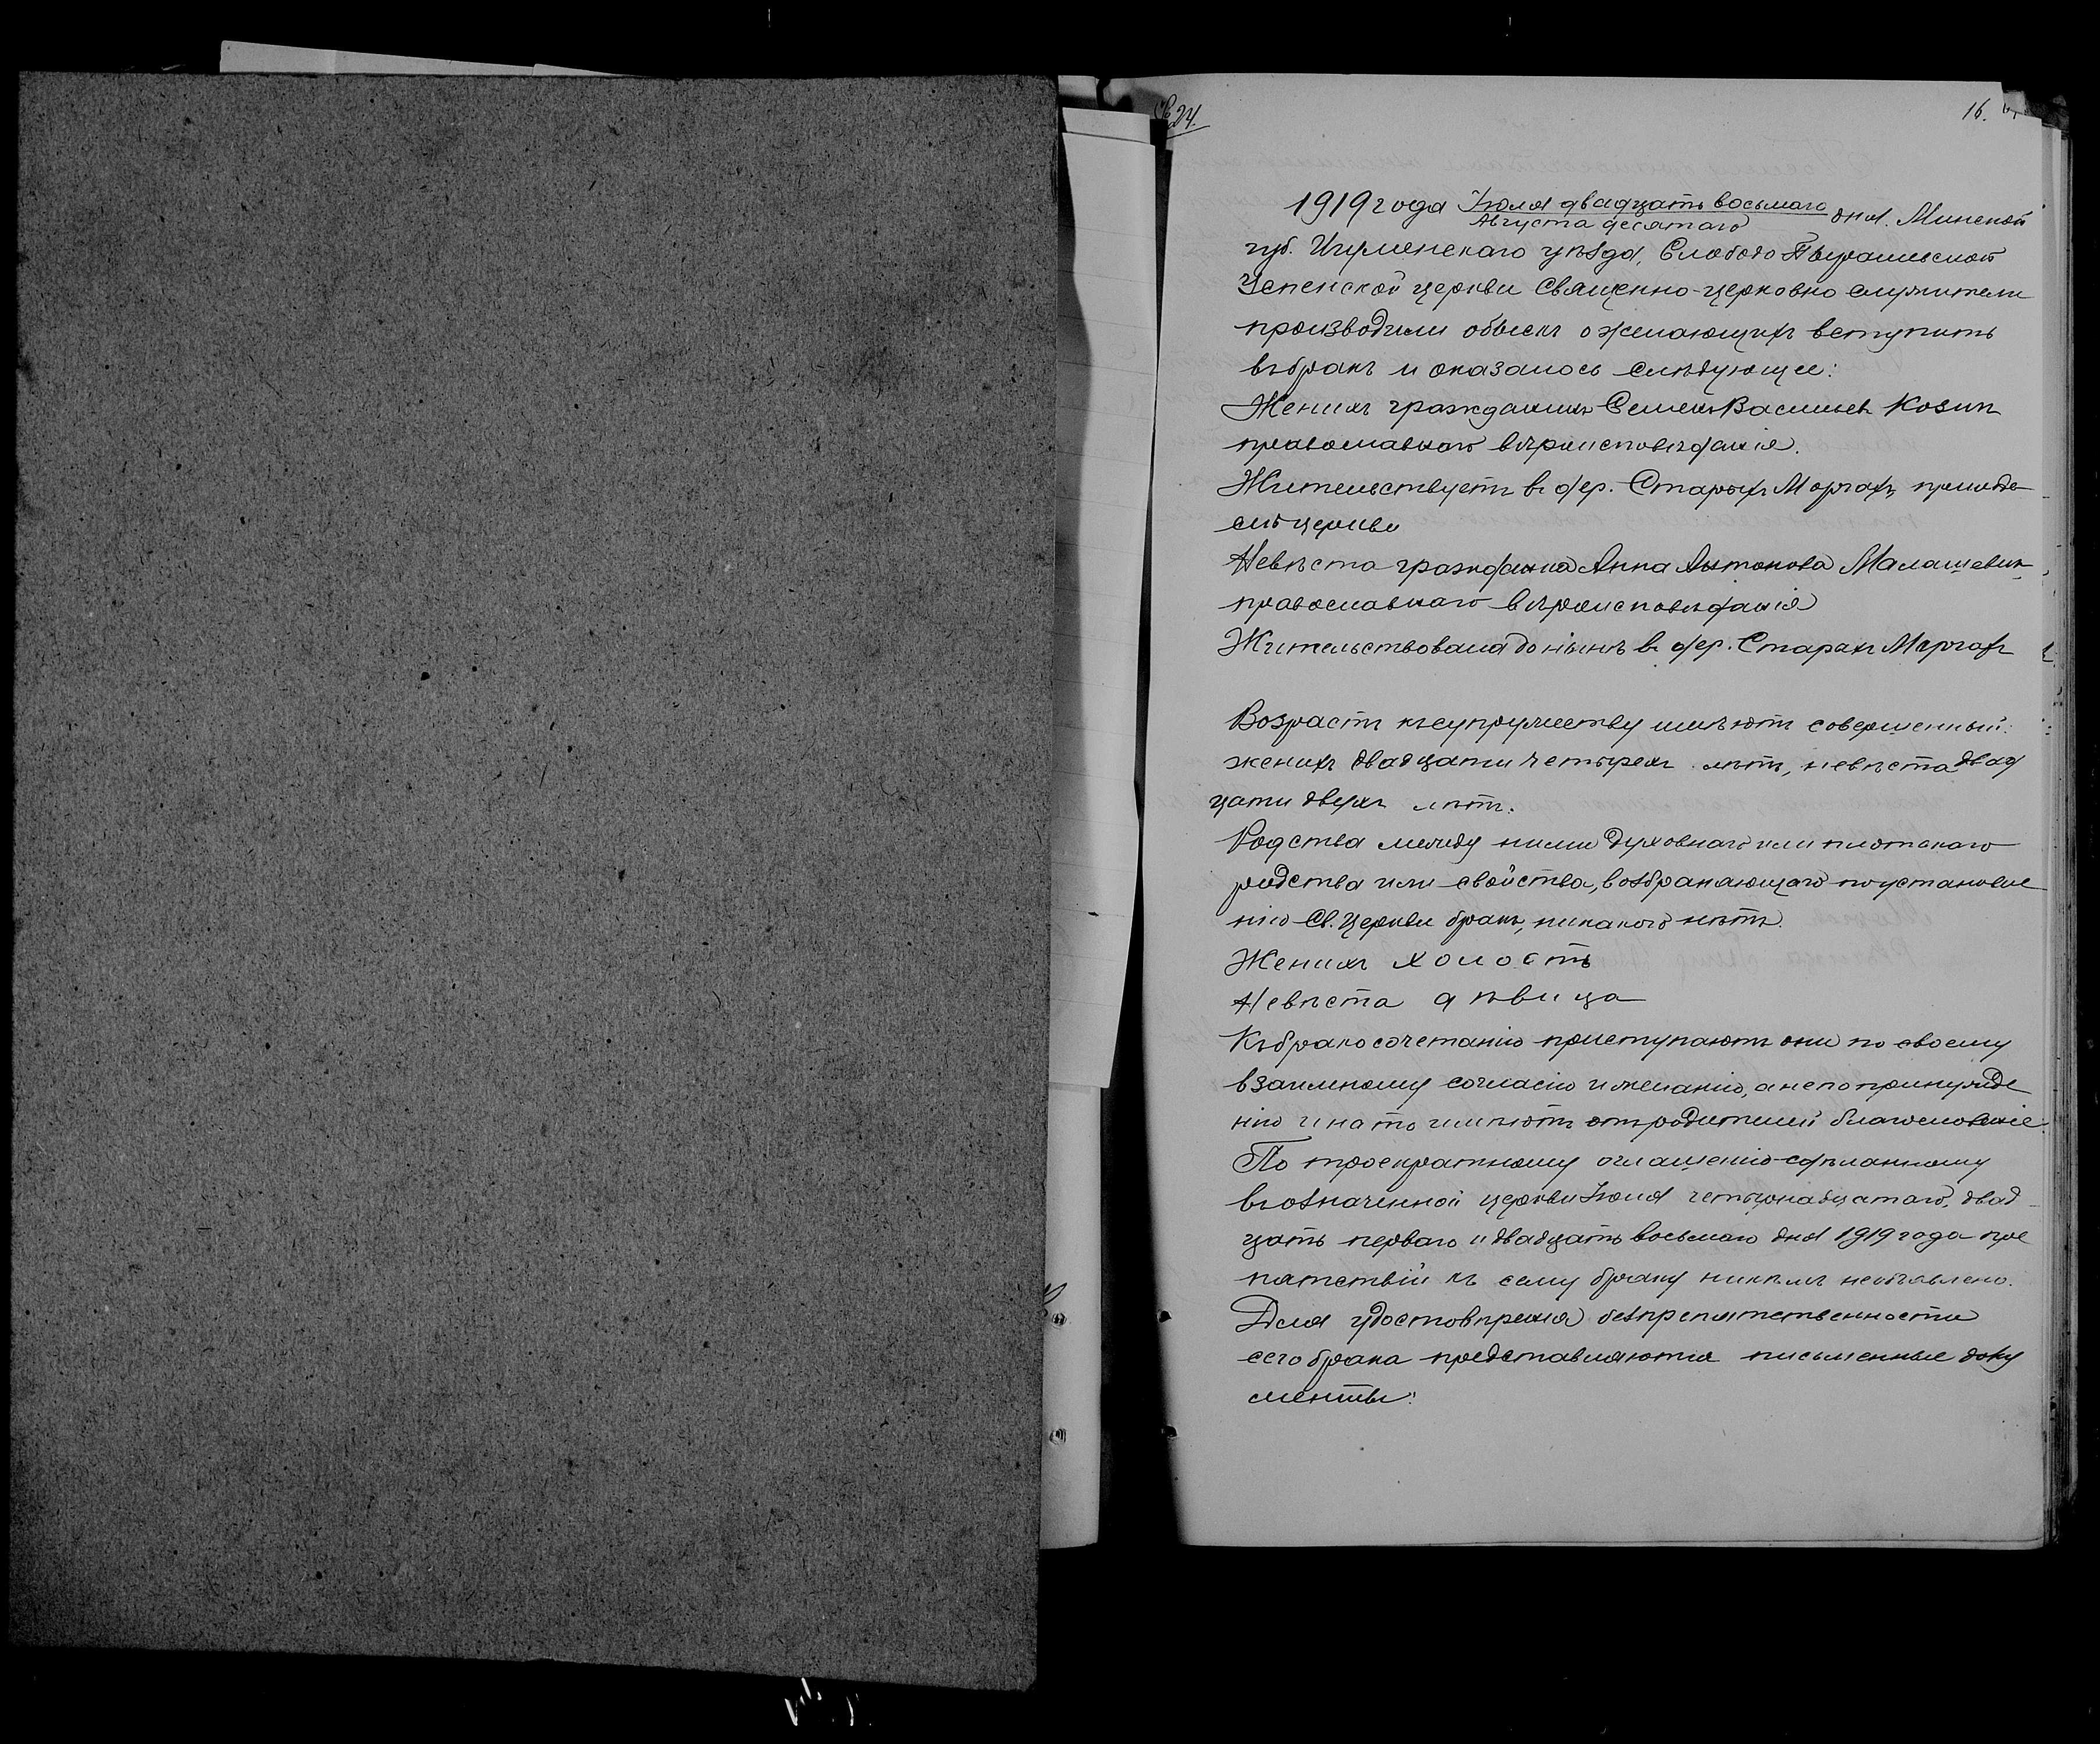 24.
16.
1919 года Іюля двадцать восьмаго дня. Минской
Августа десятаго
губ. Игуменскаго уѣзда, Слободо Пырашевской
Успенской церкви Священно-церковно служители
производили обыскъ о желающихъ вступить
въ бракъ и оказалось слѣдующее:
Женихъ гражданинъ Семенъ Васильев Козик
православнаго вѣроисповѣданія.
Жительствуетъ въ дер. Старыхъ Моргахъ, прихода
сей церкви
Невѣста гражданка Анна Антонова Малашевич
православнаго вѣроисповѣданія
Жительствовала до нынѣ въ дер. Старых Моргах
Возрастъ къ супружеству имѣютъ совершенный:
женихъ двадцати четырехъ лѣтъ, невѣста двад
цати двухъ лѣтъ.
Родства между ними духовнаго или плотскаго
родства или свойства, возбраняющаго по установле
нію Св. Церкви бракъ, никакого нѣтъ.
Женихъ холостъ
Невѣста дѣвица
Къ бракосочетанію приступаютъ они по своему
взаимному согласію и желанію, а не по принужде
нію и на то имѣютъ отъ родителей благословеніе.
По троекратному оглашенію сдѣланному
въ означенной церкви Іюля четырнадцатаго, двад
цать перваго и двадцать восьмаго дня 1919 года пре
пятствій къ сему браку никѣмъ не объявлено.
Для удостовѣренія безпрепятственности
сего брака представляются письменные доку
менты: